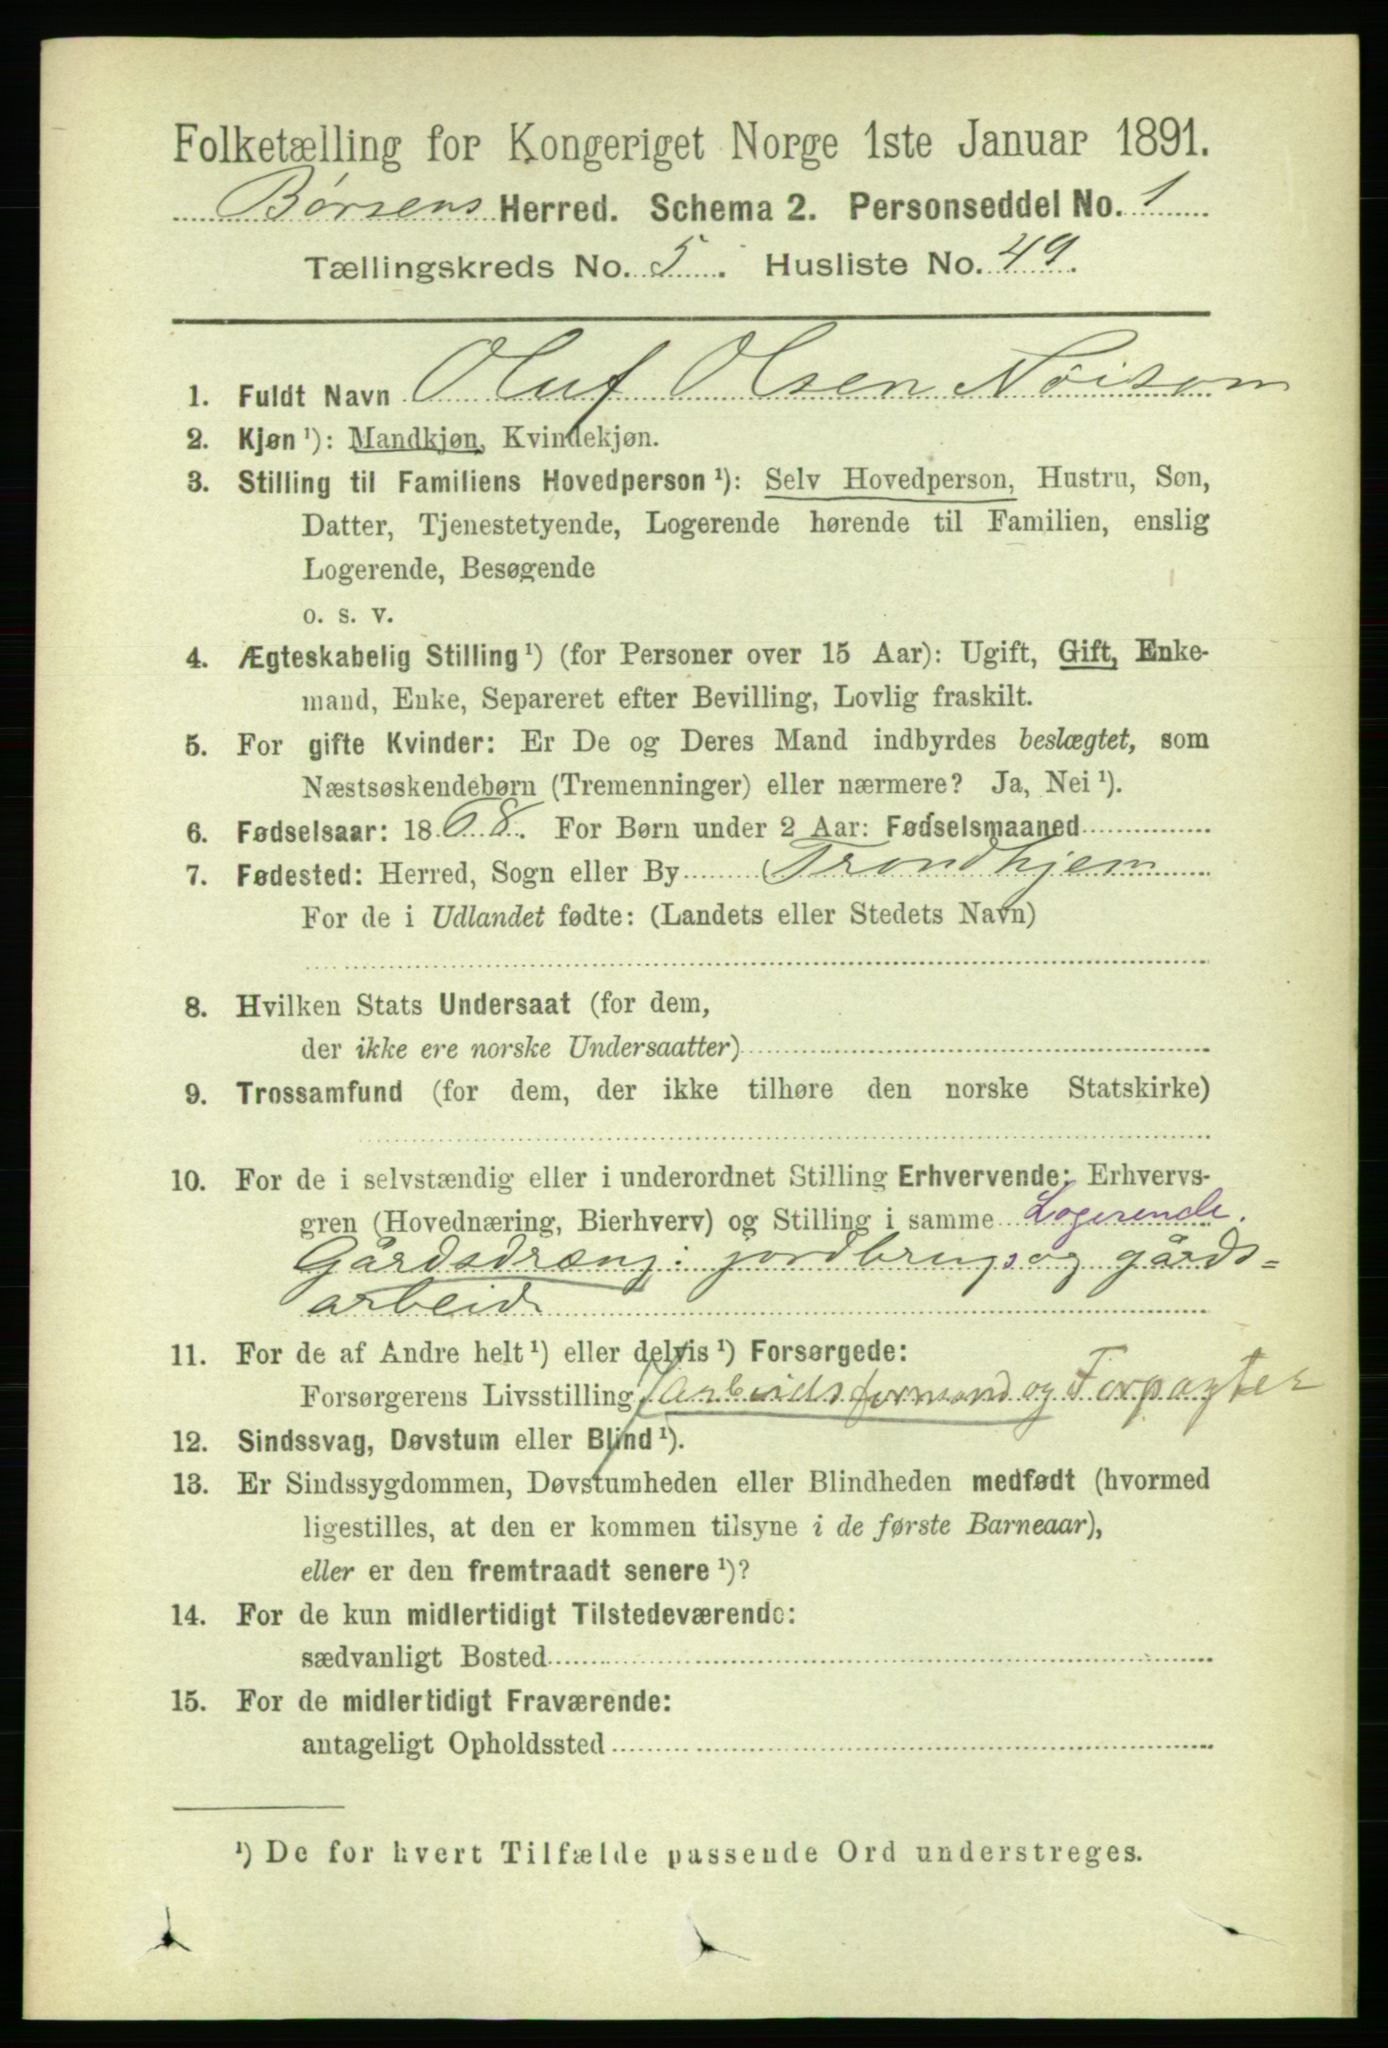 Folketælling for Kongeriget Norge 1ste Januar 1891.
Børsens Herred. Schema 2. Personseddel No. 1
Tællingskreds No. 5. Husliste No. 49.
1. Fuldt Navn Oluf Olsen Nöisom
2. Kjøn ¹): Mandkjøn, Kvindekjøn.
3. Stilling til Familiens Hovedperson ¹): Selv Hovedperson, Hustru, Søn,
Datter, Tjenestetyende, Logerende hørende til Familien, enslig
Logerende, Besøgende
o. s. v.
4. Ægteskabelig Stilling ¹) (for Personer over 15 Aar): Ugift, Gift, Enke-
mand, Enke, Separeret efter Bevilling, Lovlig fraskilt.
5. For gifte Kvinder: Er De og Deres Mand indbyrdes beslægtet, som
Næstsøskendebørn (Tremenninger) eller nærmere? Ja, Nei ¹).
6. Fødselsaar: 1868. For Børn under 2 Aar: Fødselsmaaned
7. Fødested: Herred, Sogn eller By Trondhjem
For de i Udlandet fødte: (Landets eller Stedets Navn)
8. Hvilken Stats Undersaat (for dem,
der ikke ere norske Undersaatter)
9. Trossamfund (for dem, der ikke tilhøre den norske Statskirke)
10. For de i selvstændig eller i underordnet Stilling Erhvervende: Erhvervs-
gren (Hovednæring, Bierhverv) og Stilling i samme Logerende.
Gårdsdræng: jordbrug og gårds=
arbeid
11. For de af Andre helt ¹) eller delvis ¹) Forsørgede:
Forsørgerens Livsstilling Arbeidsformand og Forpagter
12. Sindssvag, Døvstum eller Blind ¹).
13. Er Sindssygdommen, Døvstumheden eller Blindheden medfødt (hvormed
ligestilles, at den er kommen tilsyne i de første Barneaar),
eller er den fremtraadt senere ¹)?
14. For de kun midlertidigt Tilstedeværende:
sædvanligt Bosted
15. For de midlertidigt Fraværende:
antageligt Opholdssted
¹) De for hvert Tilfælde passende Ord understreges.